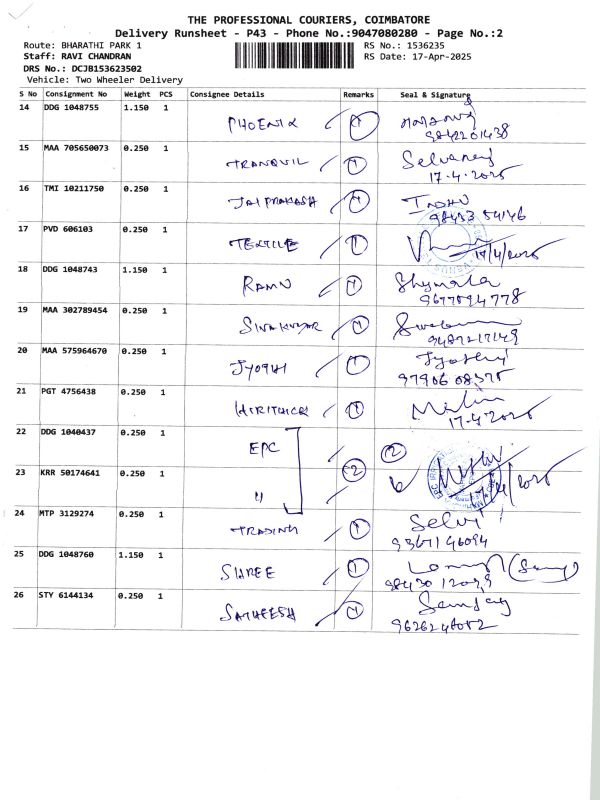 THE PROFESSIONAL COURIERS, COIMBATORE
Delivery Runsheet - P43 - Phone No.:9047080280 - Page No.:2
Route: BHARATHI PARK 1 RS No.: 1536235
Staff: RAVI CHANDRAN RS Date: 17-Apr-2025
DRS No.: DCJB153623502
Vehicle: Two Wheeler Delivery
S No Consignment No Weight PCS Consignee Details Remarks Seal & Signature
14 DDG 1048755 1.150 1 PHOENIX 1
9842201438
15 MAA 705650073 0.250 1 TRANQUIL 1 Selvaraj
17.4.2025
16 TMI 10211750 0.250 1 JAI PRAKASH 1 INDHU
17 PVD 606103 0.250 1 TEXTILE 1 17/4/2025
18 DDG 1048743 1.150 1 RAMN 1 Shymala
9677894778
19 MAA 302789454 0.250 1 SIVAKUMAR 1
9489217149
20 MAA 575964670 0.250 1 JYOTHI 1 Jyothi
97906 08375
21 PGT 4756438 0.250 1 HIRITHICK 1
17-4-2025
22 DDG 1040437 0.250 1 EPC 2
23 KRR 50174641 0.250 1 " 2
24 MTP 3129274 0.250 1 TRADING 1 Selvi
9367146094
25 DDG 1048760 1.150 1 SHREE 1
98430 12029
26 STY 6144134 0.250 1 SATHEESH 1 Sanjay
9626246082